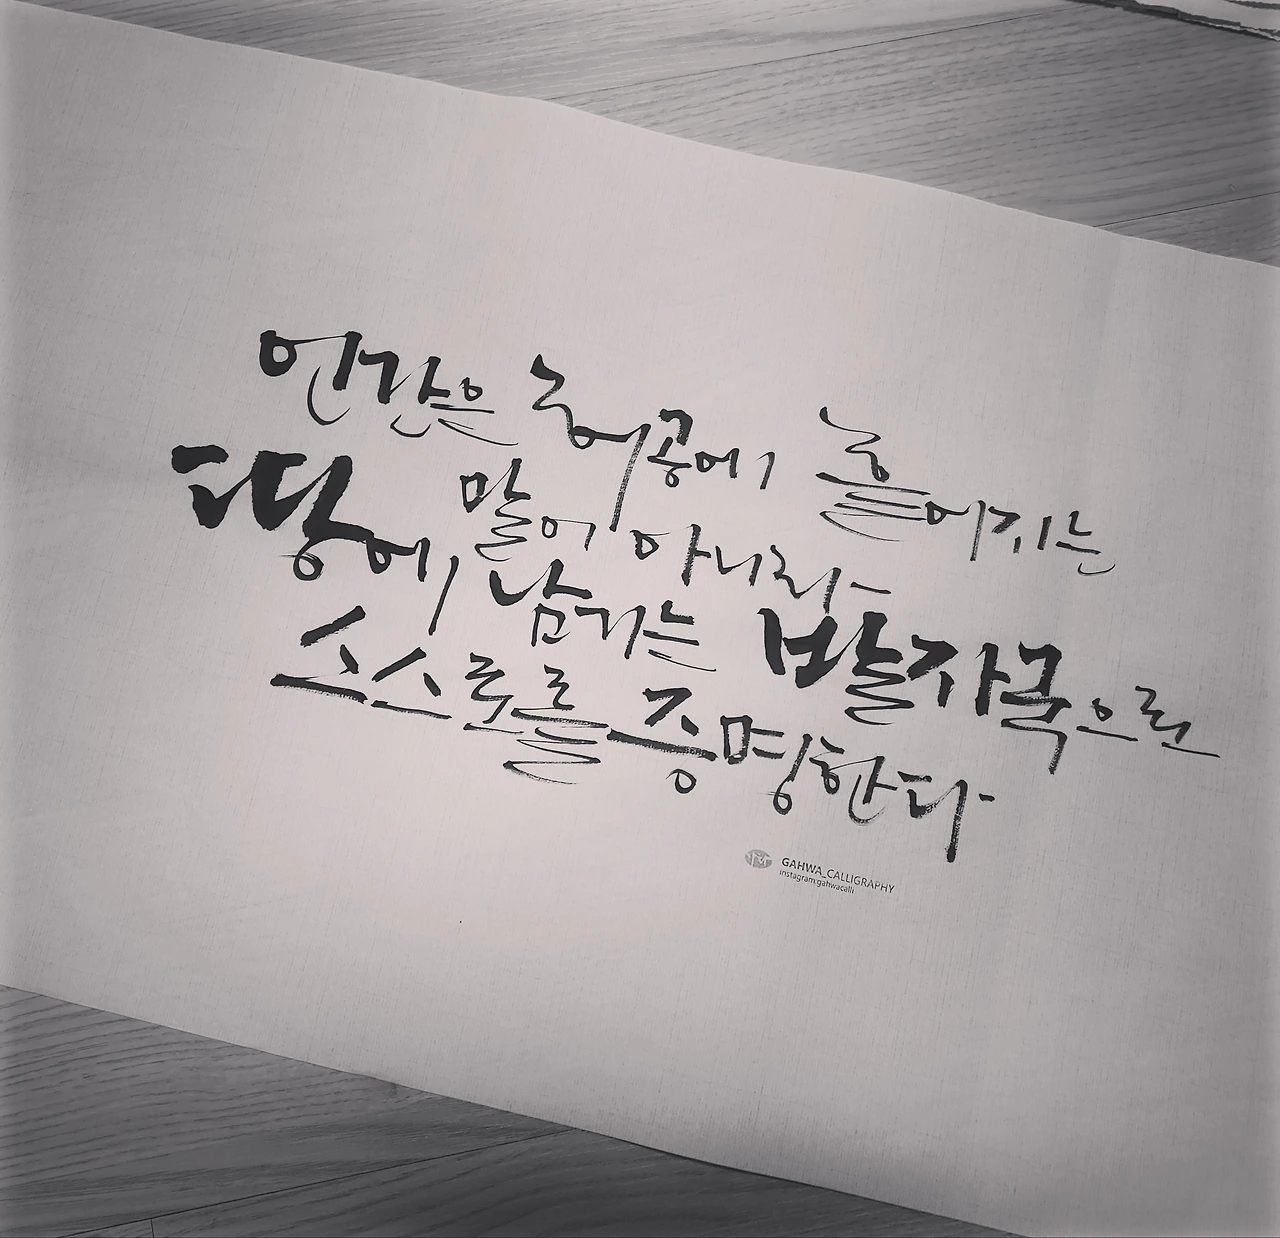 인간은 허공에 흩어지는
말이 아니라
땅에 남기는 발자국으로
스스로를 증명한다
GAHWA_CALLIGRAPHY
instagram:gahwacalli